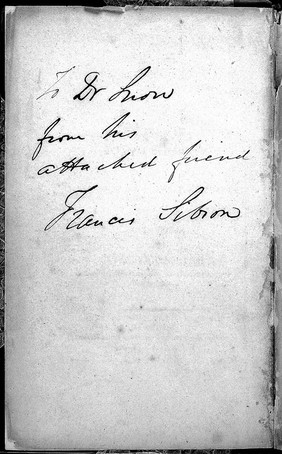 To Dr Snow
from his
attached friend
Francis Sibson